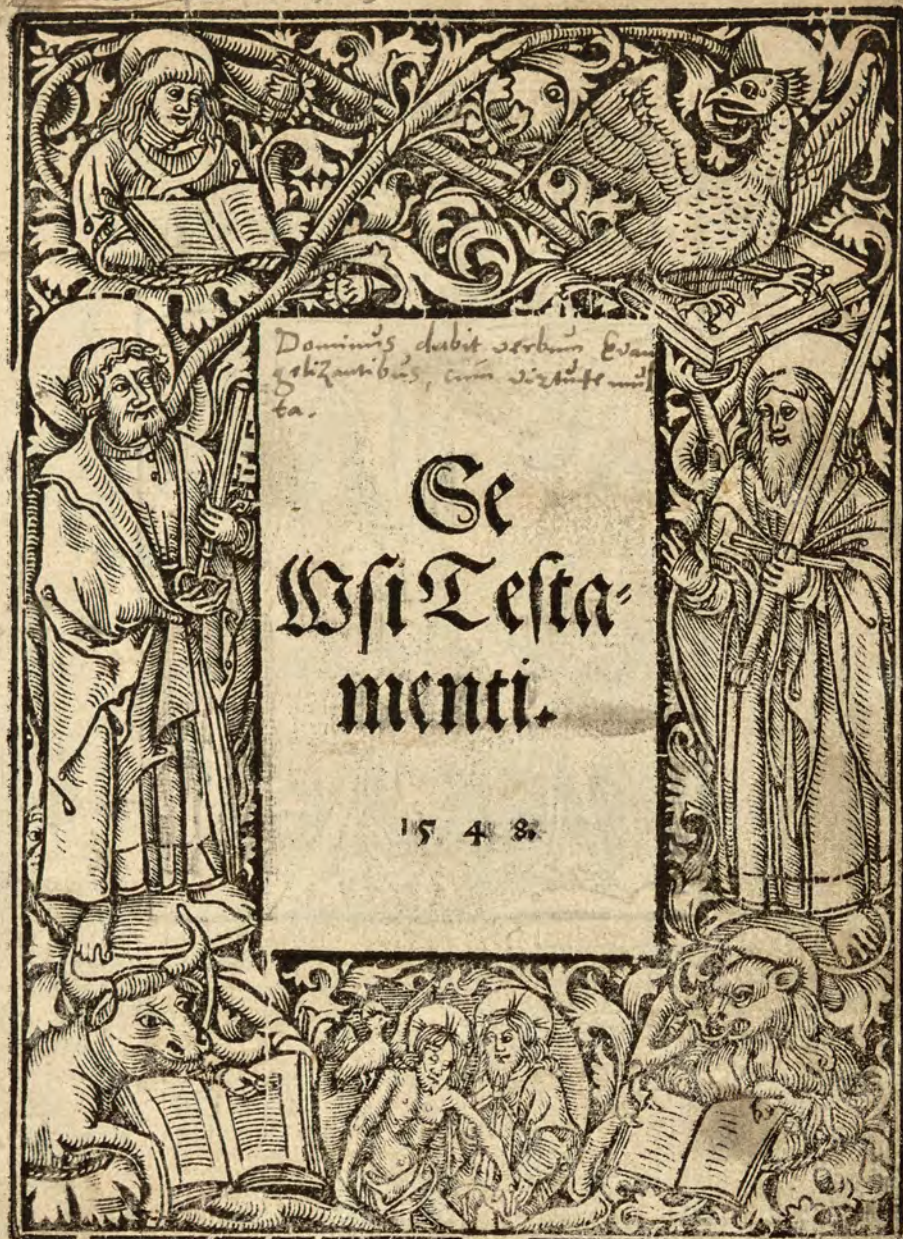 Dominus dabit verbum Euan
gelizantibus, cum virtute mul
ta.
Se
Wsi Testa-
menti.
1548.